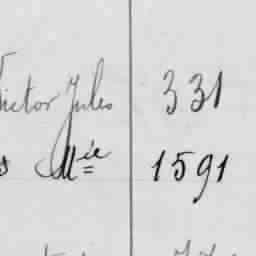 Victor Jules 331
s Mie 1591